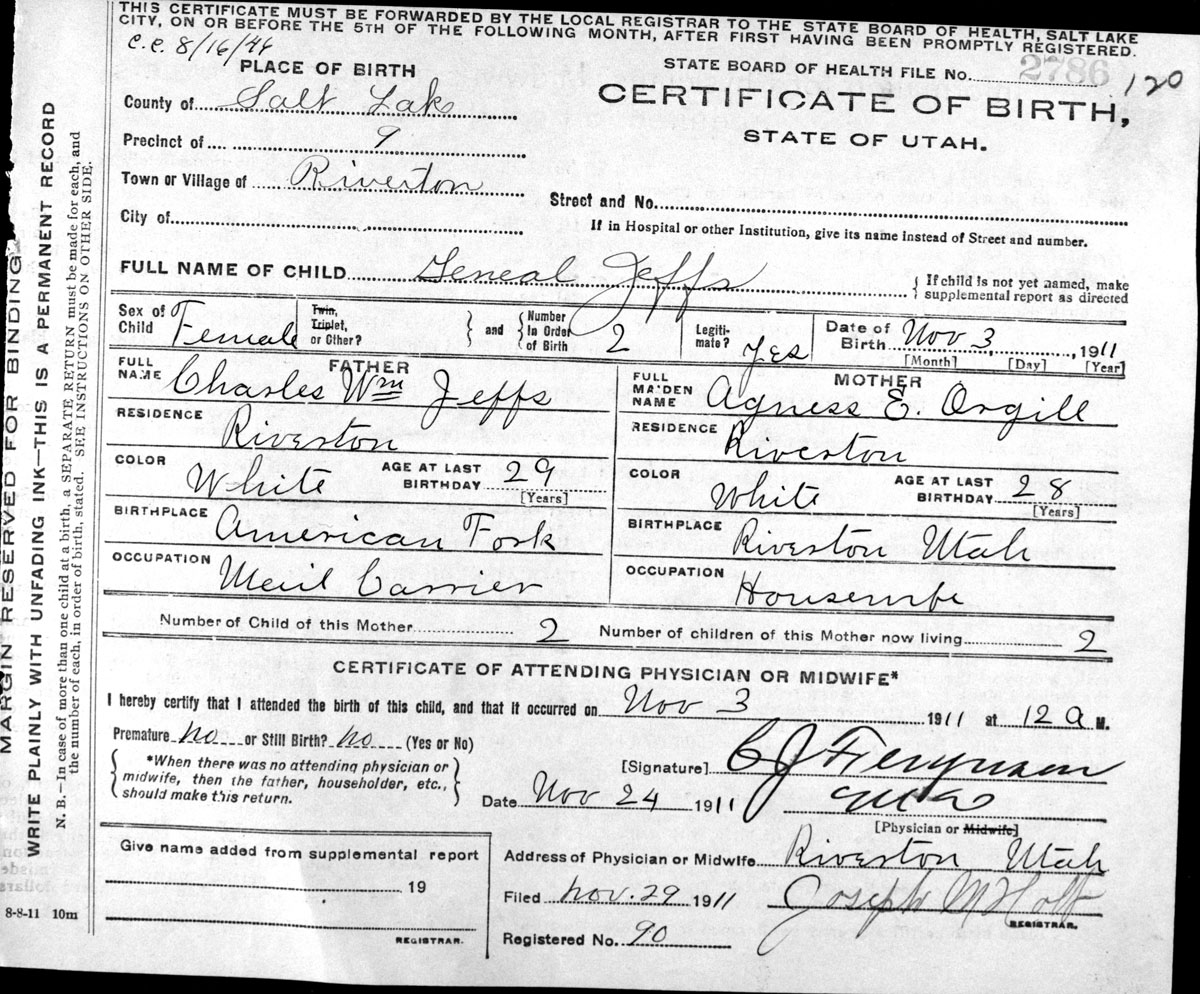 THIS CERTIFICATE MUST BE FORWARDED BY THE LOCAL REGISTRAR TO THE STATE BOARD OF HEALTH, SALT LAKE
CITY, ON OR BEFORE THE 5TH OF THE FOLLOWING MONTH, AFTER FIRST HAVING BEEN PROMPTLY REGISTERED.
c.c. 8/16/46
PLACE OF BIRTH
STATE BOARD OF HEALTH FILE No. 2786 120
County of Salt Lake
CERTIFICATE OF BIRTH,
STATE OF UTAH.
Precinct of 9
Town or Village of Riverton
Street and No.
City of
If in Hospital or other Institution, give its name instead of Street and number.
FULL NAME OF CHILD Geneal Jeffs
If child is not yet named, make
supplemental report as directed
Sex of Child Female
Twin, Triplet, or Other?
and Number In Order of Birth 2
Legiti-mate? yes
Date of Birth Nov 3, 1911
[Month] [Day] [Year]
FATHER
FULL NAME Charles Wm Jeffs
RESIDENCE Riverton
COLOR White AGE AT LAST BIRTHDAY 29
[Years]
BIRTHPLACE American Fork
OCCUPATION Meril Carrier
MOTHER
FULL MAIDEN NAME Agness E. Orgill
RESIDENCE Riverton
COLOR White AGE AT LAST BIRTHDAY 28
[Years]
BIRTHPLACE Riverton Utah
OCCUPATION Housewife
Number of Child of this Mother 2 Number of children of this Mother now living 2
CERTIFICATE OF ATTENDING PHYSICIAN OR MIDWIFE*
I hereby certify that I attended the birth of this child, and that it occurred on Nov 3 1911 at 12 a M.
Premature no or Still Birth? no (Yes or No)
*When there was no attending physician or
midwife, then the father, householder, etc.,
should make this return.
[Signature] C J Ferguson
Date Nov 24 1911
[Physician or Midwife]
Give name added from supplemental report
19
REGISTRAR.
Address of Physician or Midwife Riverton Utah
Filed Nov. 29 1911 Joseph M Holt
REGISTRAR.
Registered No. 90
8-8-11 10m
MARGIN RESERVED FOR BINDING
WRITE PLAINLY WITH UNFADING INK—THIS IS A PERMANENT RECORD
N. B.—In case of more than one child at a birth, a SEPARATE RETURN must be made for each, and
the number of each, in order of birth, stated. SEE INSTRUCTIONS ON OTHER SIDE.